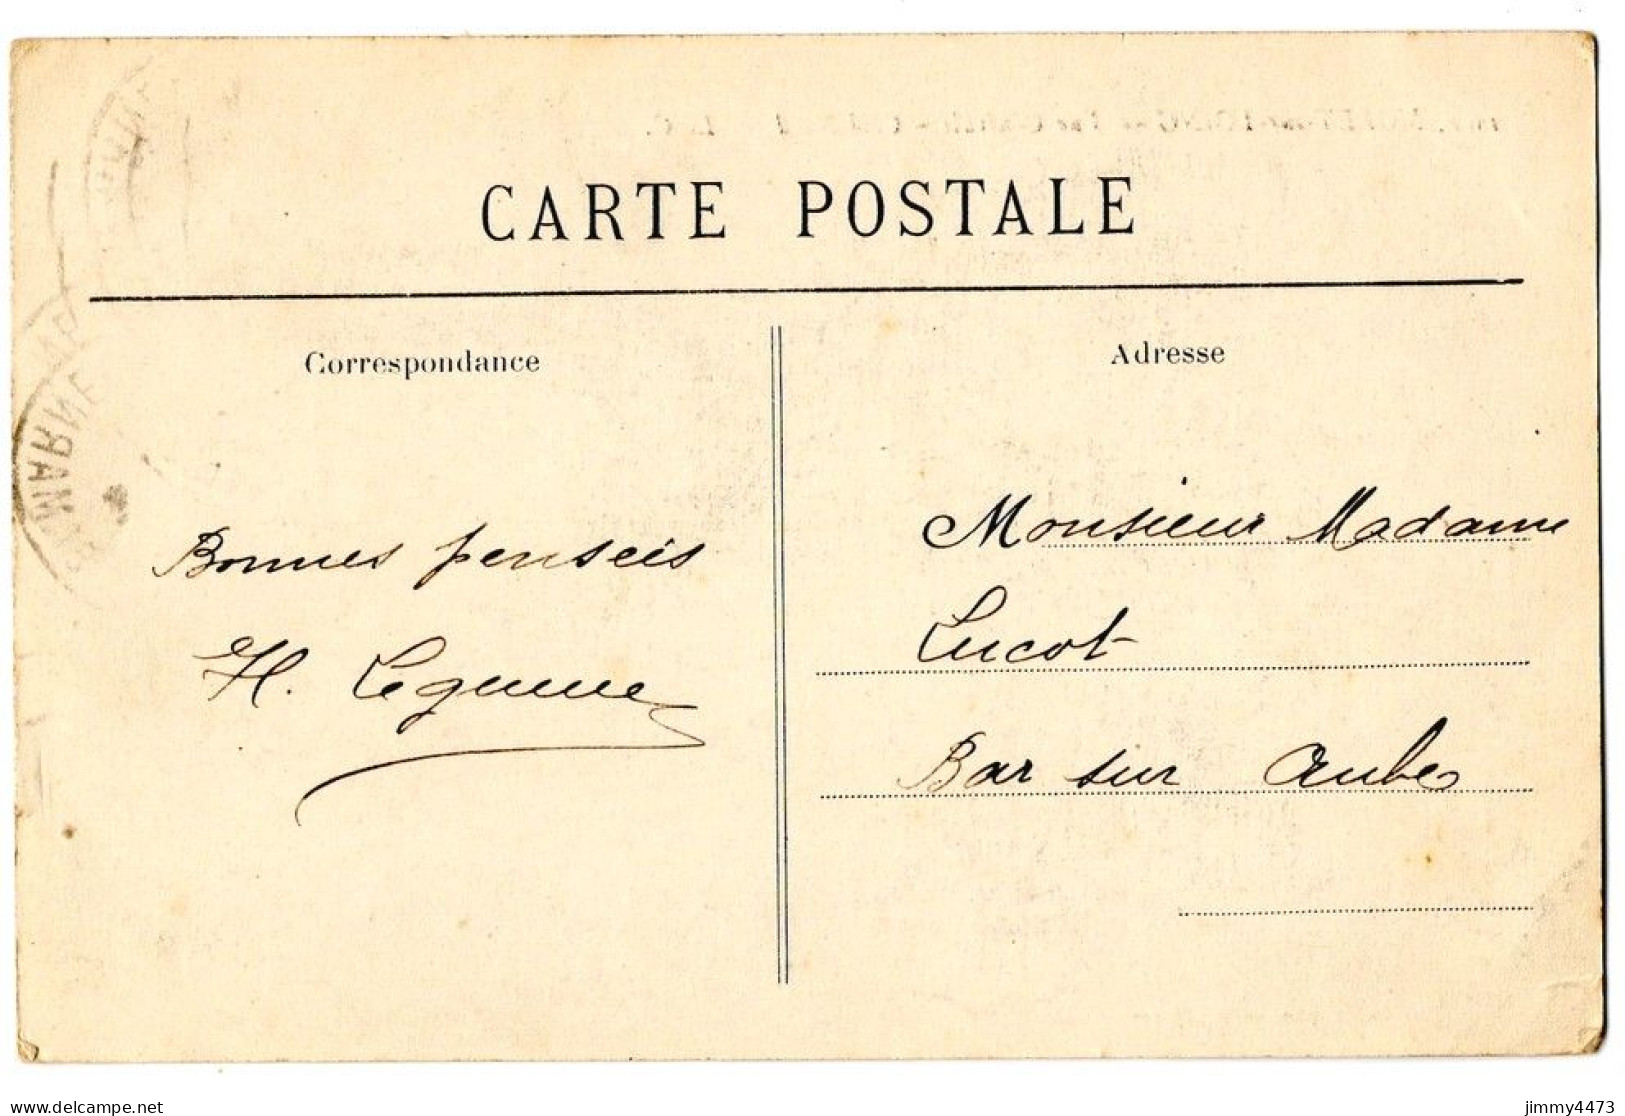 CARTE POSTALE
Correspondance
Adresse
Bonnes penseés
H. Legueue
Monsieur Madame
Lucot
Bar sur Aube
MARNE
delcampe.net
jimmy4473